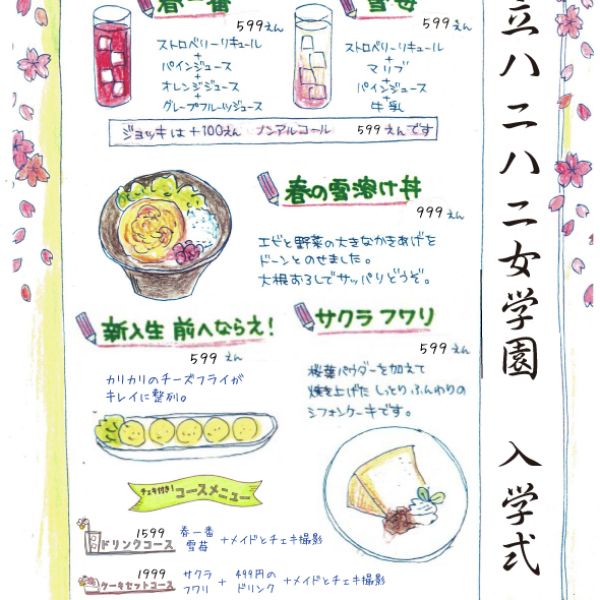 春一番
599えん
ストロベリーリキュール
+
パインジュース
+
オレンジジュース
+
グレープフルーツジュース
雪苺
599えん
ストロベリーリキュール
+
マリブ
+
パインジュース
+
牛乳
ジョッキは+100えん ノンアルコール 599えんです
春の雪溶け丼
999えん
エビと野菜の大きなかきあげを
ドーンとのせました。
大根おろしでサッパリどうぞ。
新入生 前へならえ!
599えん
カリカリのチーズフライが
キレイに整列。
サクラフワリ
599えん
桜葉パウダーを加えて
焼き上げた しっとりふんわりの
シフォンケーキです。
チェキ付き!
コースメニュー
1599
ドリンクコース
春一番
雪苺
+メイドとチェキ撮影
1999
ケーキセットコース
サクラ
フワリ
+
499円の
ドリンク
+メイドとチェキ撮影
立八二八二女学園 入学式